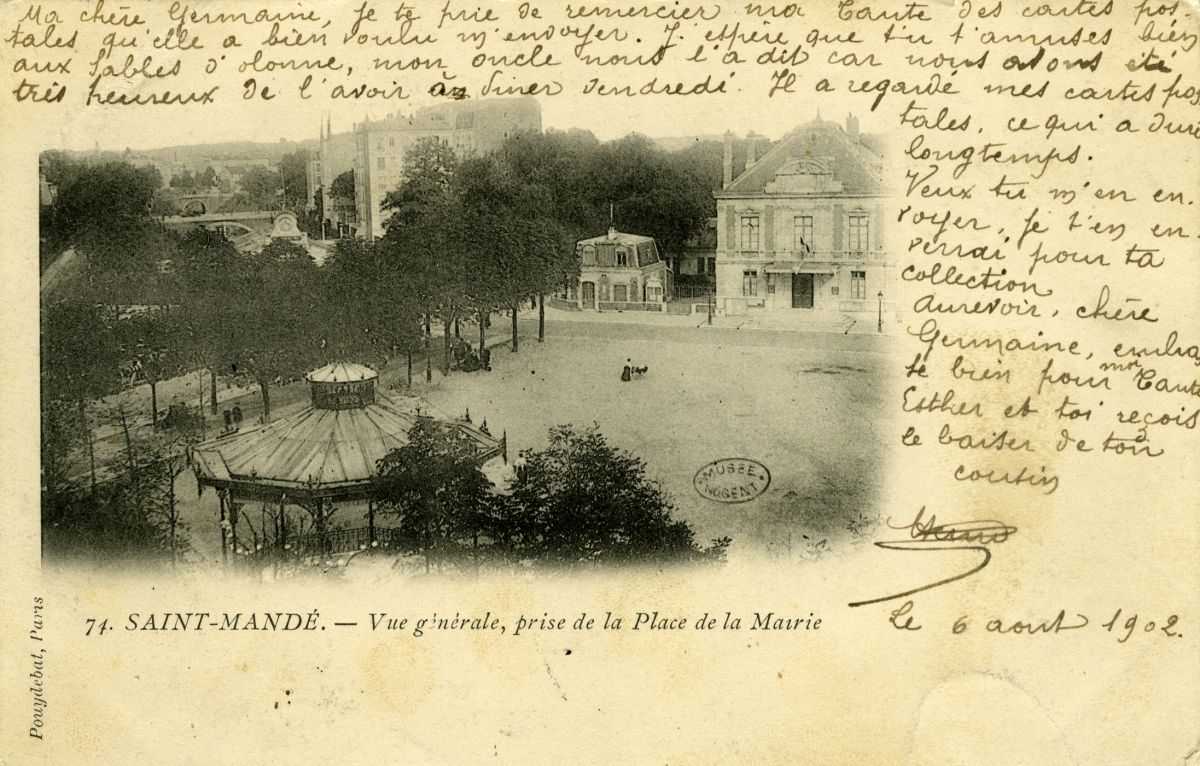 Ma chère Germaine, Je te prie de remercier ma Tante des cartes pos-
tales qu'elle a bien voulu m'envoyer. J'espère que tu t'amuses bien
aux Sables d'olonne, mon oncle nous l'a dit car nous avons été
très heureux de l'avoir à diner vendredi. Il a regardé mes cartes pos
tales, ce qui a duré
longtemps.
Veux tu m'en en-
voyer, je t'en en-
verrai pour ta
collection
aurevoir, chère
Germaine, embras
se bien pour moi Tante
Esther et toi reçois
le baiser de ton
cousin
MUSÉE
NOGENT
74. SAINT-MANDÉ. — Vue générale, prise de la Place de la Mairie
Le 6 aout 1902.
Pouydebat, Paris